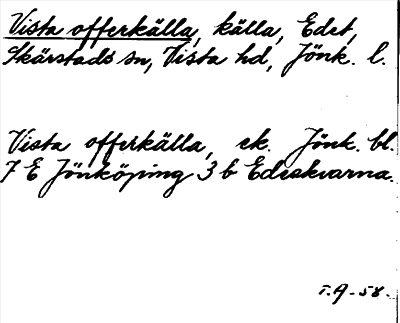 Vista offerkälla, källa, Edet,
Skärstads sn, Vista hd, Jönk. l.
Vista offerkälla, ek. Jönk. bl.
7 E Jönköping 3 b Edeskvarna.
T.A-58.